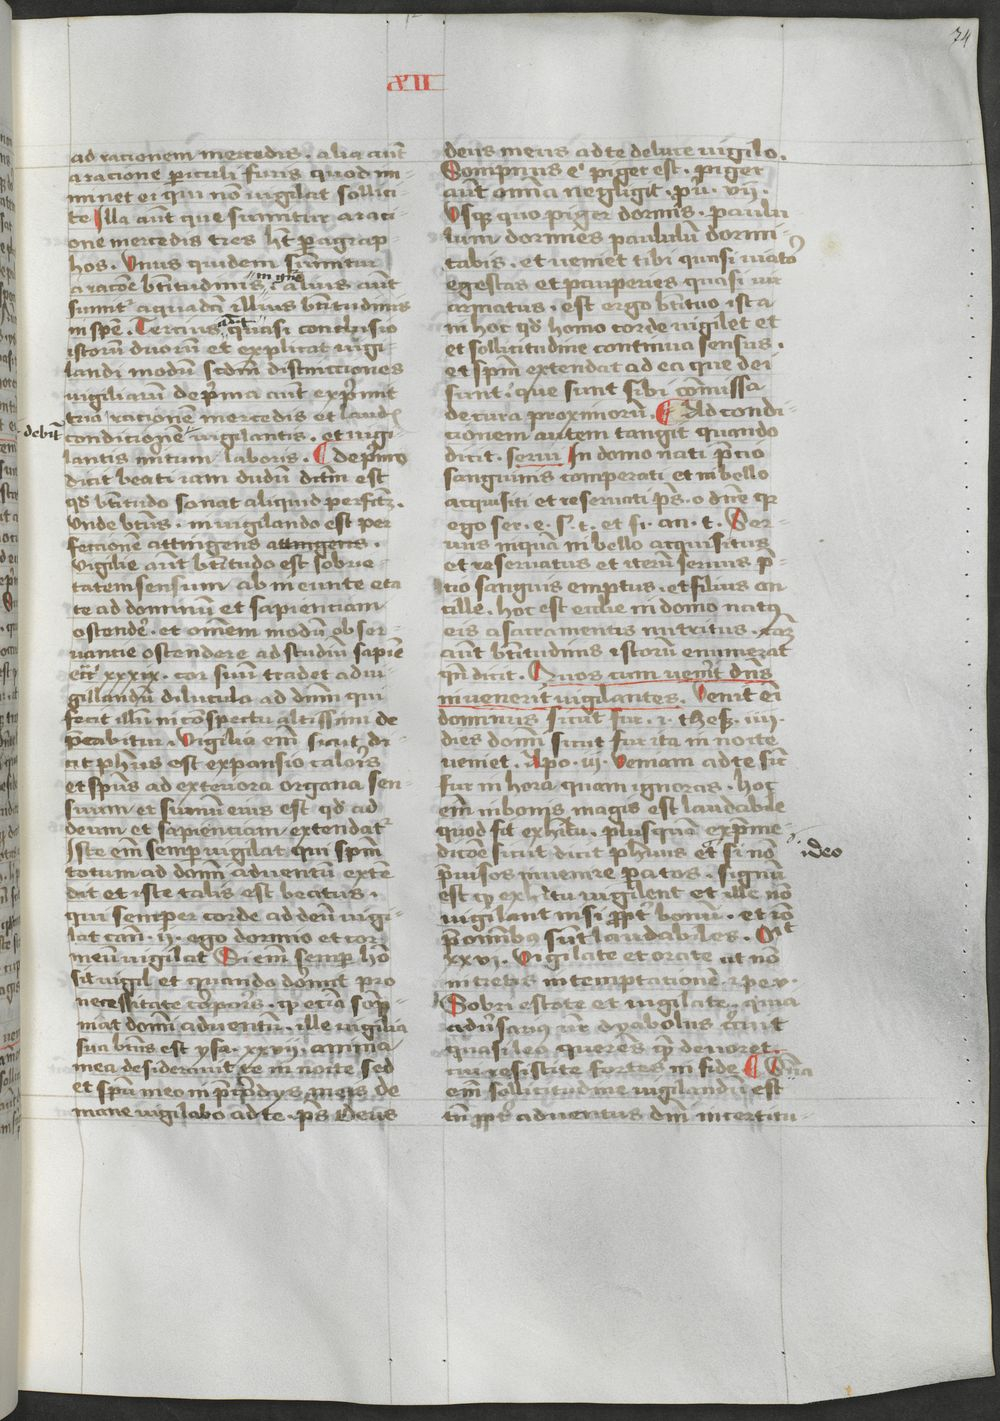 74
XII
ad racionem mercedis . alia aut̄
a racione ꝑiculi furis quod im-
minet ei qui nō vigilat sollici-
te Illa aut̄ que sumitur a raci-
one mercedis tres hn̄t ꝑagrap-
hos . Unus quidem sumitur
a racōe bt̄itudinis in gn̄e alius aut̄
sumit᷑ a quadā illius bt̄itudinis
in spē . Tercius quasi conclusio
istorū duorū et explicat vigi-
landi modū scdm̄ distinctiones
vigiliarū de pͥma aut̄ exp̄mit
tria racionē mercedis et laud
debitā
condicionē vigilantis . et vigi-
lantis initum laboris . ¶ de pͥmo
dicit beati iam dudū dictū est
qd̄ bt̄itudo sonat aliquid perfct̄ .
Unde bt̄us . in vigilando est per
fectionē attingens attingens .
Vigilie aut̄ bt̄itudo est sobrie-
tatem sensum ab ineunte eta
te ad dominū et sapienciam
ostende᷑ . et omnem modū obser-
vantie ostendere ad studiū sapiē
ecci xxxix . cor suū tradet ad vi-
gillandū diluculo ad dnm̄ qui
fecit illū in conspectu altissimi de
p̄cabitur . Vigilia em̄ sicut di-
cit ph̄us est expansio caloris
et sp̄us ad exteriora organa sen-
suum et summū eius est qd̄ ad
deum et sapienciam extendat᷑
Iste em̄ semper vigilat qui sp̄m
totum ad domī adventū extē
dit et iste talis est beatus .
qui semper corde ad deū vigi-
lat can̄ . v . ego dormio et cor
meū vigilat Si em̄ semꝑ ho
sit vigil et quando dormit pro
necessitate corporis . ꝙ eciā sop-
niat domī adventū . ille vigilia
sua bt̄us est ysa . xxvi . anima
mea desideravit te in nocte sed
et spū meo in p̄cordiis meis de
mane vigilabo ad te . ps Deus
deus meus ad te de luce vigilo .
Sompnus eͥ piger est . piger
aut̄ om̄ia negligit . ꝓv . vi .
Usqꝫ quo piger dormis . paulu
lum dormies paululū dormi-
tabis . et veniet tibi quasi viato᷑
egestas et pauperies quasi vir
armatus . est ergo bt̄itudo ista
in hoc qd̄ homo corde vigilet et
et sollicitudine continua sensus .
et sp̄m extendat ad ea que dei
sunt . que sunt sibi cōmissa
de cura proximorū . ¶ Ad condi-
cionem autem tangit quando
dicit . servi In domo nati p̄cio
sanguinis comperati et in bello
acquisiti et reservati ps . o dn̄e ꝗꝛ
ego ser . t . s . t . et fi . an . t . Ser-
vus inquā in bello acquisitus
et reservatus et iterū servus p̄-
cio sanguis emptus . et filius an
cille . hoc est ecclie in domo natꝰ
eis a sacramentis nutritus . cām
aut̄ bt̄itudinis istorū enumerat
qn̄ dicit . Quos cum veneͥt dn̄s
invenerit vigilantes . Venit em̄
dominus sicut fur . i . thess . iiii .
dies domī sicut fur ita in nocte
veniet . Apo . iij . Veniam ad te sic̄
fur in hora quam ignoras . hoc
em̄ in bonis magis est laudabile
quod fit exhītu . plusquā exp̄me-
ditōe sicut dicit ph̄us et si nō
ideo
p̄visos invenire paratos . signū
est ꝙ exhītu vigilent et ille nō
vigilant nisi ꝓpt̄ bonū . et iō
p̄ omnibꝰ sūt laudabiles . Mt̄
xxvi . Vigilate et orate ut nō
intretis in temptacionē . i pe v .
Sobri estote et vigilate . quia
adversariꝰ vr̄ dyabolus c̄cuit
quasi leo querēs qē devoret .
cui resistite fortes in fide ¶ Una
em̄ sollicitudine vigilandū est
tn̄ ꝓpt᷑ adventus dm̄ incertitu-